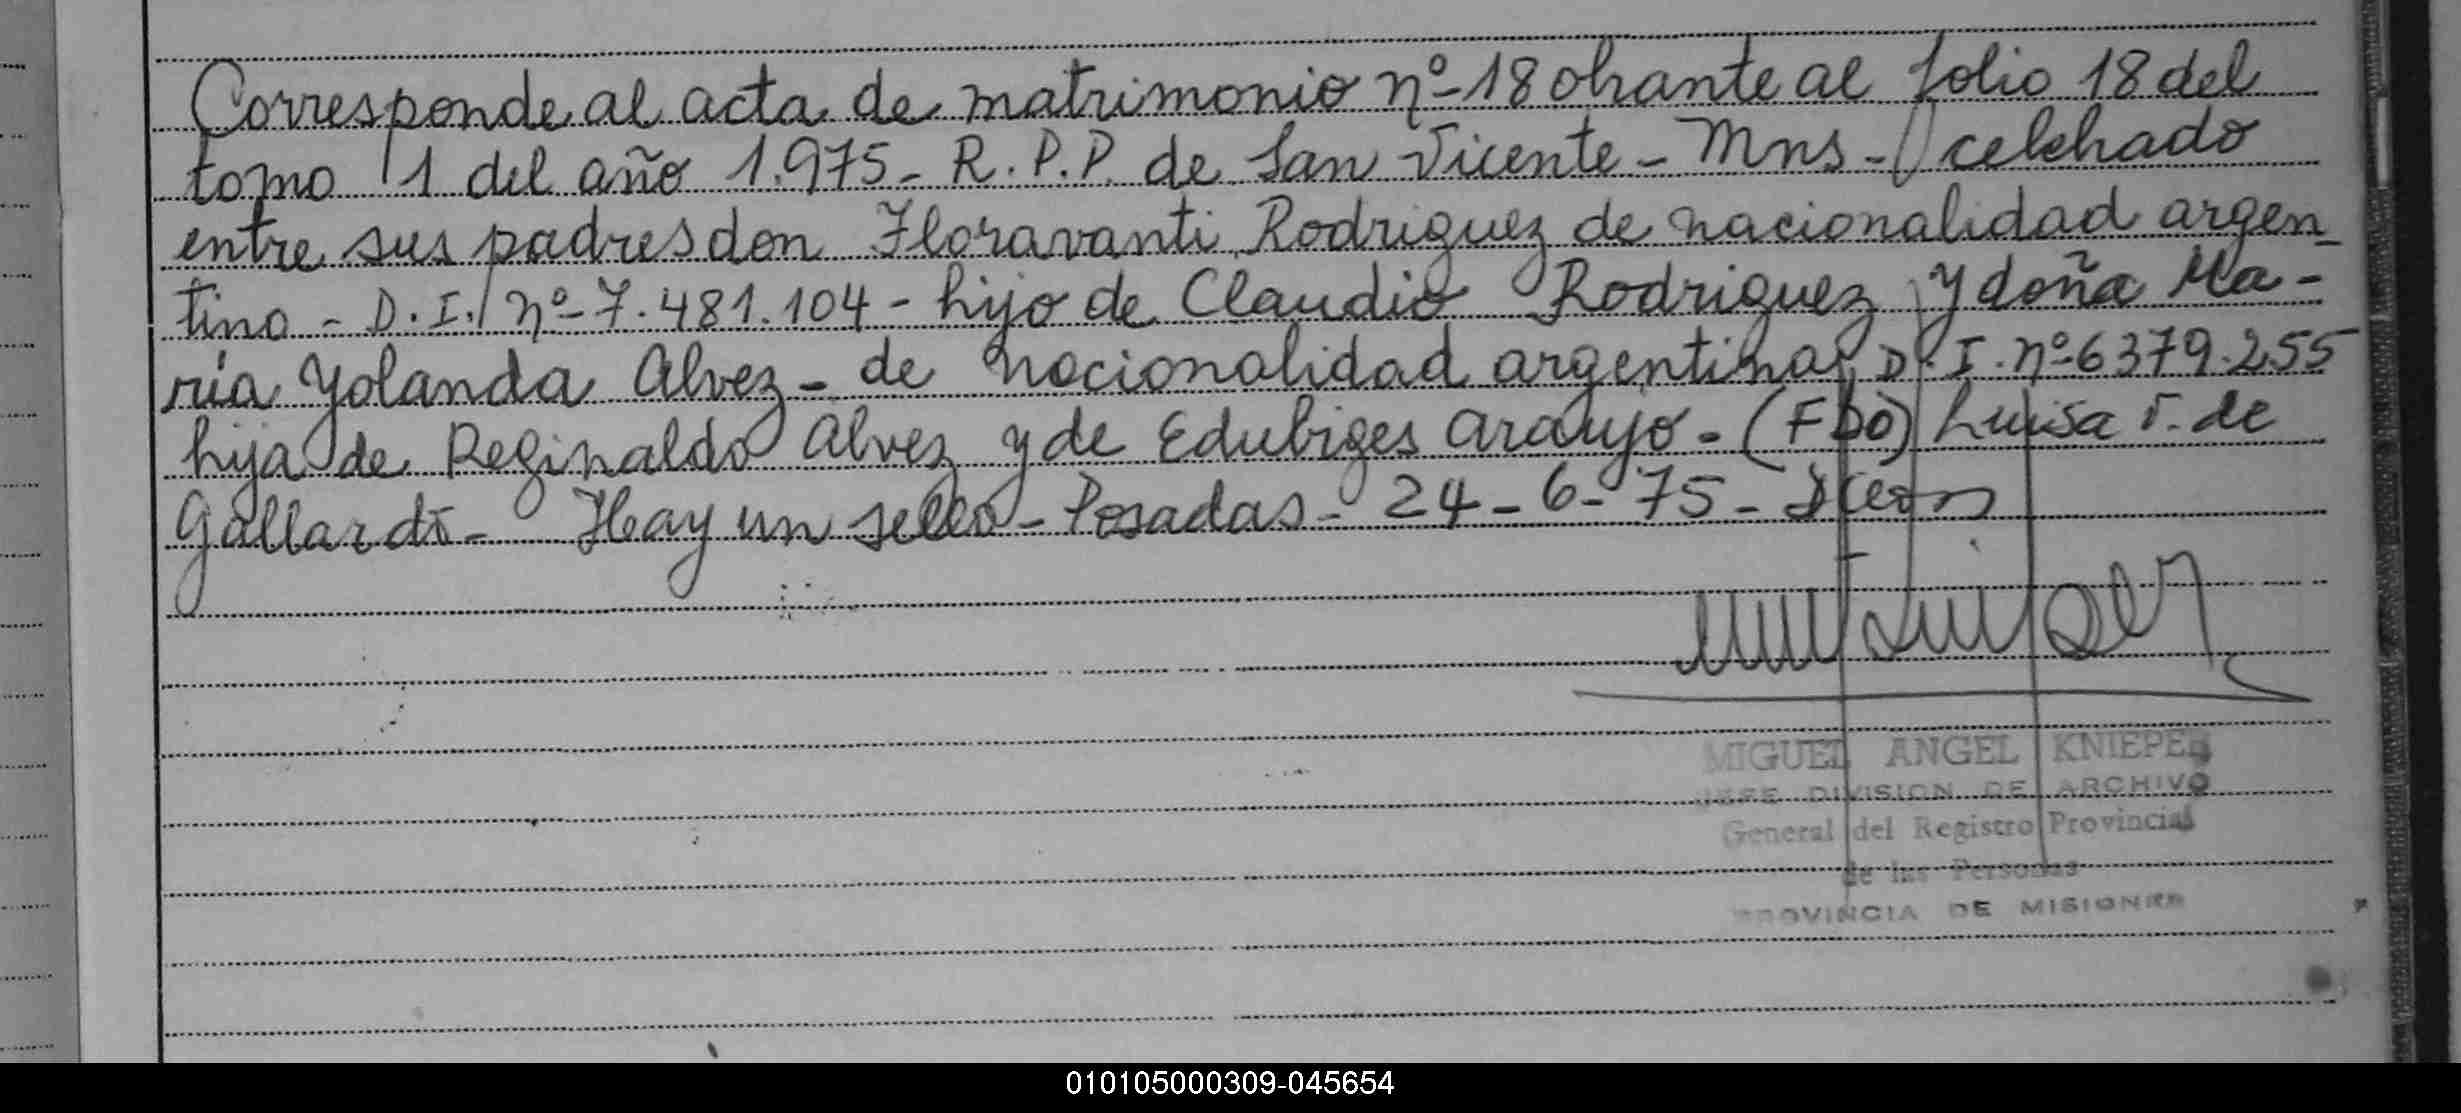 Corresponde al acta de matrimonio nº-18 obrante al folio 18 del
tomo 1 del año 1.975- R.P.P. de San Vicente - Mns - celebrado
entre sus padres don Floravanti Rodriguez de nacionalidad argen-
tina - D.I. nº-7.481.104 - hijo de Claudio Rodriguez y doña Ma-
ria Yolanda Alvez - de nacionalidad argentina, D.I. nº-6379.255
hija de Reginaldo Alvez y de Edubiges Araujo - (Fdo) Luisa F. de
Gallardo - Hay un sello - Posadas - 24-6-75 -
MIGUEL ANGEL KNIEPER
JEFE DIVISION DE ARCHIVO
General del Registro Provincial
de las Personas
PROVINCIA DE MISIONES
010105000309-045654